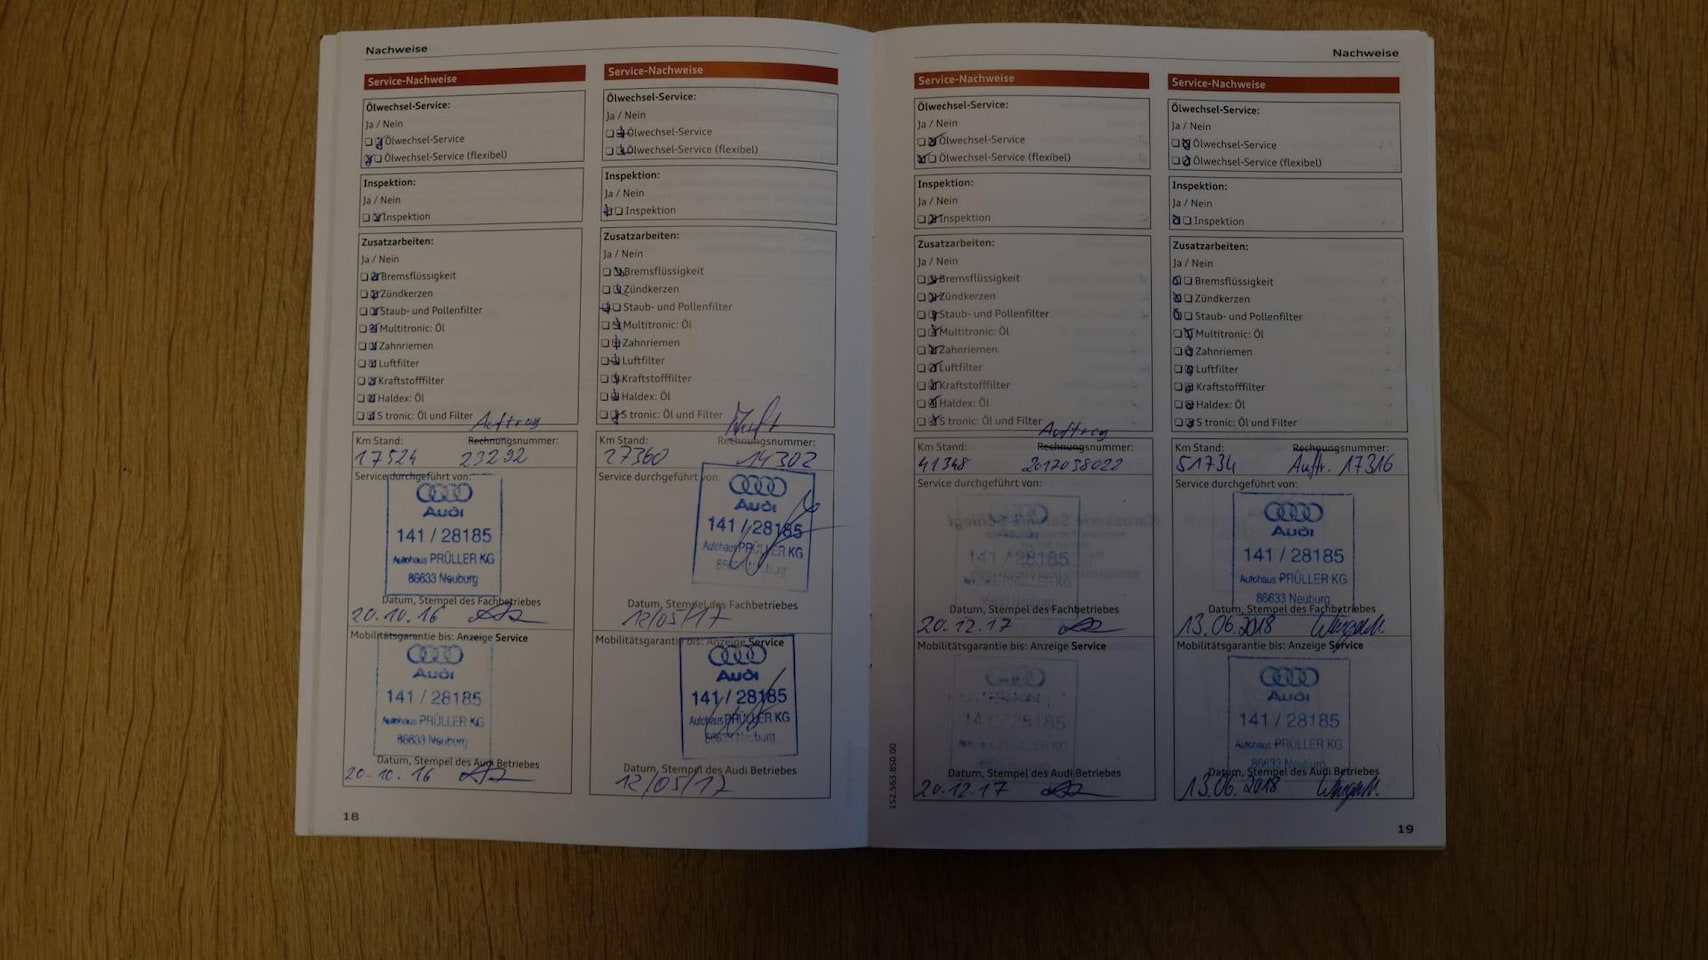 Nachweise
Service-Nachweise
Ölwechsel-Service:
Ja / Nein
Ölwechsel-Service
Ölwechsel-Service (flexibel)
Inspektion:
Ja / Nein
Inspektion
Zusatzarbeiten:
Ja / Nein
Bremsflüssigkeit
Zündkerzen
Staub- und Pollenfilter
Multitronic: Öl
Zahnriemen
Luftfilter
Kraftstofffilter
Haldex: Öl
S tronic: Öl und Filter
Auftrag
Km Stand: Rechnungsnummer:
17524 23292
Service durchgeführt von:
Audi
141 / 28185
Autohaus PRÜLLER KG
86633 Neuburg
Datum, Stempel des Fachbetriebes
20.10.16
Mobilitätsgarantie bis: Anzeige Service
Audi
141 / 28185
Autohaus PRÜLLER KG
86633 Neuburg
Datum, Stempel des Audi Betriebes
20.10.16
18
Service-Nachweise
Ölwechsel-Service:
Ja / Nein
Ölwechsel-Service
Ölwechsel-Service (flexibel)
Inspektion:
Ja / Nein
Inspektion
Zusatzarbeiten:
Ja / Nein
Bremsflüssigkeit
Zündkerzen
Staub- und Pollenfilter
Multitronic: Öl
Zahnriemen
Luftfilter
Kraftstofffilter
Haldex: Öl
S tronic: Öl und Filter
Km Stand: Rechnungsnummer:
27360 14302
Service durchgeführt von:
Audi
141 / 28185
Autohaus PRÜLLER KG
86633 Neuburg
Datum, Stempel des Fachbetriebes
12/05/17
Mobilitätsgarantie bis: Anzeige Service
Audi
141 / 28185
Autohaus PRÜLLER KG
86633 Neuburg
Datum, Stempel des Audi Betriebes
12/05/17
Nachweise
Service-Nachweise
Ölwechsel-Service:
Ja / Nein
Ölwechsel-Service
Ölwechsel-Service (flexibel)
Inspektion:
Ja / Nein
Inspektion
Zusatzarbeiten:
Ja / Nein
Bremsflüssigkeit
Zündkerzen
Staub- und Pollenfilter
Multitronic: Öl
Zahnriemen
Luftfilter
Kraftstofffilter
Haldex: Öl
S tronic: Öl und Filter
Auftrag
Km Stand: Rechnungsnummer:
41348 2017038022
Service durchgeführt von:
141 / 28185
Datum, Stempel des Fachbetriebes
20.12.17
Mobilitätsgarantie bis: Anzeige Service
141 / 28185
Datum, Stempel des Audi Betriebes
20.12.17
152.563.850.00
Service-Nachweise
Ölwechsel-Service:
Ja / Nein
Ölwechsel-Service
Ölwechsel-Service (flexibel)
Inspektion:
Ja / Nein
Inspektion
Zusatzarbeiten:
Ja / Nein
Bremsflüssigkeit
Zündkerzen
Staub- und Pollenfilter
Multitronic: Öl
Zahnriemen
Luftfilter
Kraftstofffilter
Haldex: Öl
S tronic: Öl und Filter
Km Stand: Rechnungsnummer:
51734 Auftr. 17316
Service durchgeführt von:
Audi
141 / 28185
Autohaus PRÜLLER KG
86633 Neuburg
Datum, Stempel des Fachbetriebes
13.06.2018
Mobilitätsgarantie bis: Anzeige Service
Audi
141 / 28185
Autohaus PRÜLLER KG
86633 Neuburg
Datum, Stempel des Audi Betriebes
13.06.2018
19